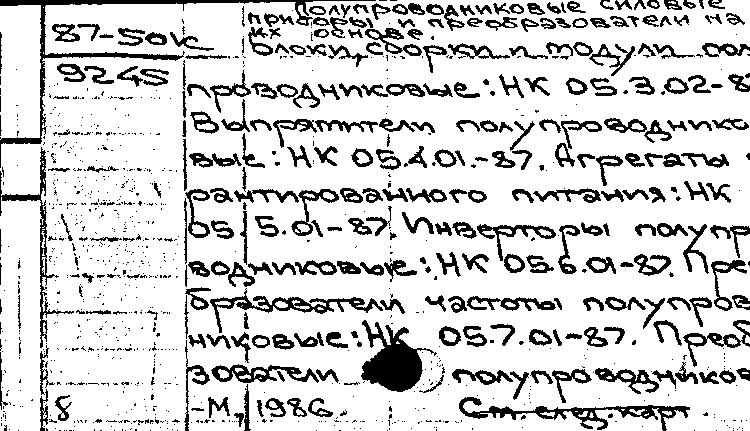 Полупроводниковые силовые
приборы и преобразователи на
87-50к их основе.
Блоки, сборки и модули пол
9245
проводниковые: НК 05.3.02-8
Выпрятители полупроводнико
вые: НК 05.4.01.-87. Агрегаты
рантированного питания: НК
05.5.01-87. Инверторы полупр
водниковые: НК 05.6.01-87. Прe
бразователи частоты полупров
никовые: НК 05.7.01-87. Преоб
зователи полупроводников
8 -М, 1986. См. след. карт.